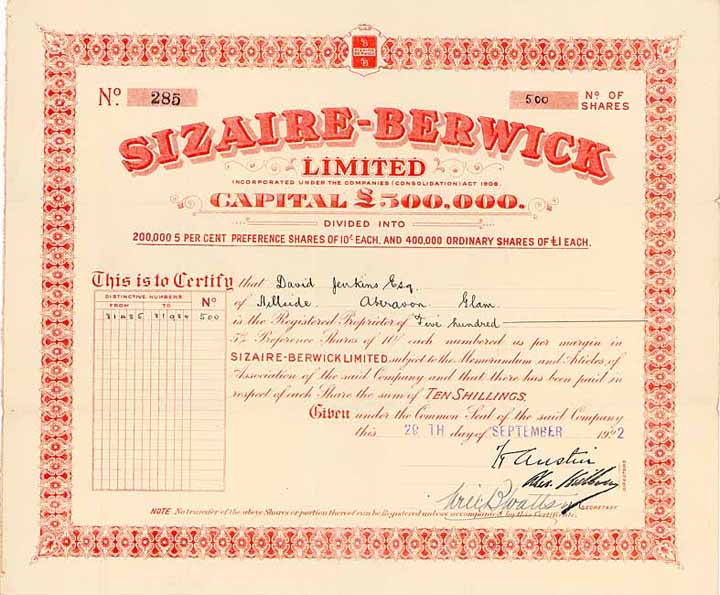 SIZAIRE BERWICK
No. 285
500 No OF SHARES
SIZAIRE-BERWICK
LIMITED
INCORPORATED UNDER THE COMPANIES (CONSOLIDATION) ACT 1908.
CAPITAL £500,000.
DIVIDED INTO
200,000 5 PER CENT PREFERENCE SHARES OF 10/- EACH, AND 400,000 ORDINARY SHARES OF £1 EACH.
This is to Certify that David Jenkins Esq.
of Hillside. Aberavon Glam
is the Registered Proprietor of Five hundred
5% Preference Shares of 10/- each numbered as per margin in
SIZAIRE-BERWICK LIMITED subject to the Memorandum and Articles of
Association of the said Company and that there has been paid in
respect of each Share the sum of TEN SHILLINGS.
Given under the Common Seal of the said Company
this 20 TH day of SEPTEMBER 1922
DISTINCTIVE NUMBERS No
FROM TO
500
H Austin
DIRECTORS
SECRETARY
NOTE No transfer of the above Shares or portion thereof can be Registered unless accompanied by this Certificate.